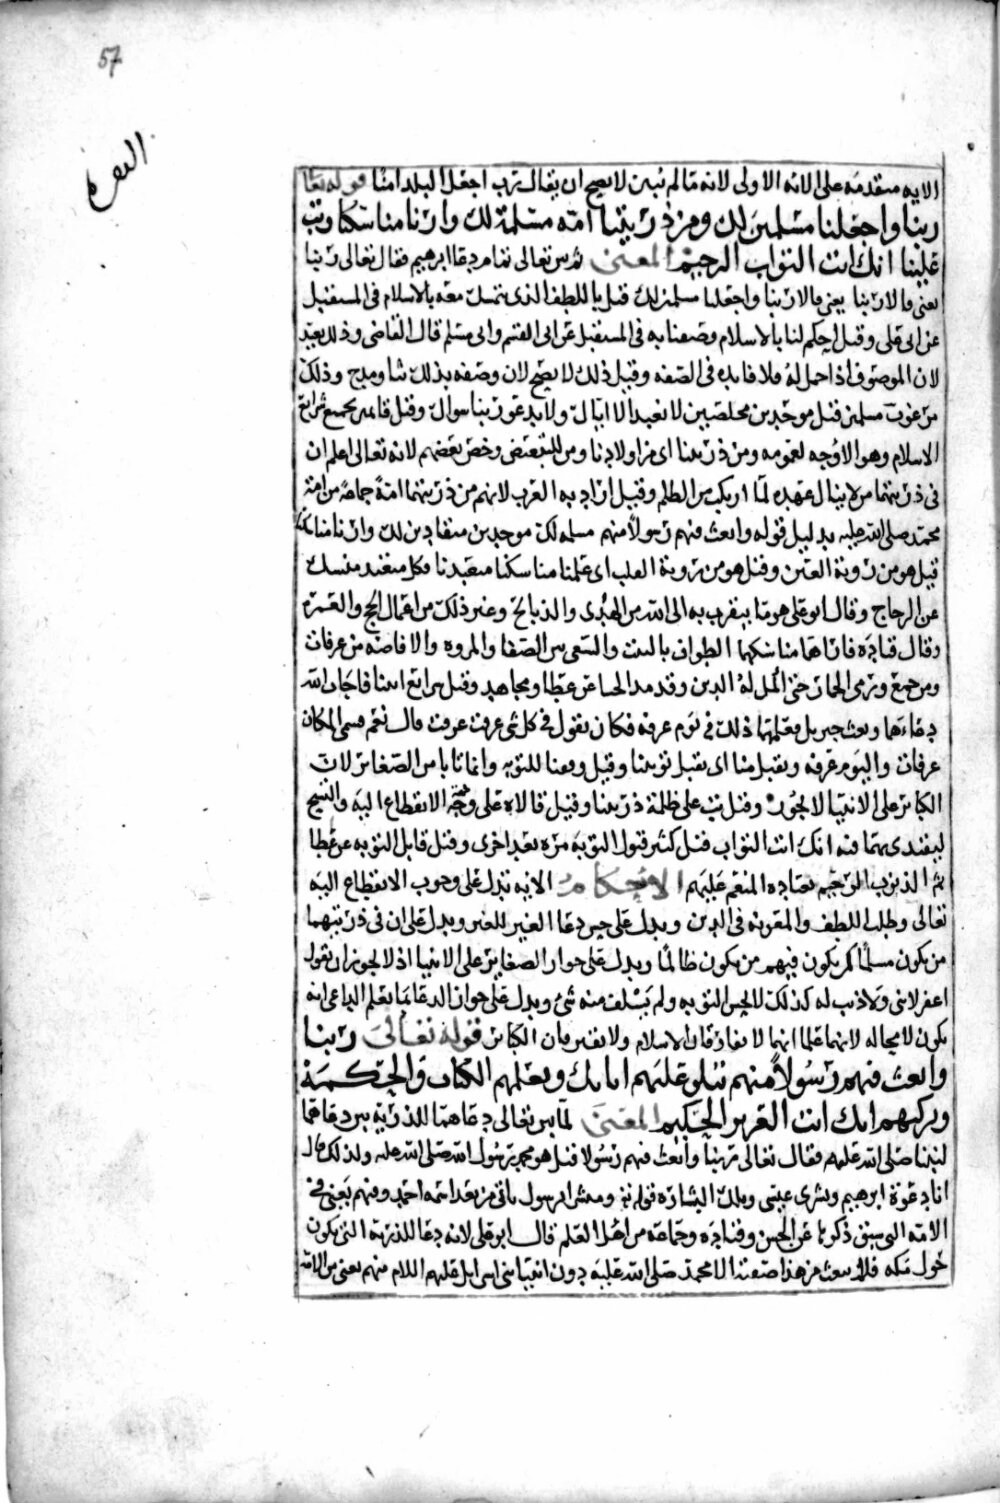 57
البقرة
الايه متقدمه على الايه الاولى لانه ما لم تبين لا يصح ان يقال رب اجعل البلد امنا قوله تعا
ربنا واجعلنا مسلمين لك ومن ذريتنا امة مسلمة لك وارنا مناسكنا وتب
علينا انك انت التواب الرحيم المعنى ثم بين تعالى تمام دعا ابرهيم فقال تعالى ربنا
يعنى قالا ربنا يعنى قالا ربنا واجعلنا مسلمين لك قيل باللطف الذى نتمسك معه بالاسلام فى المستقبل
عن ابى على وقيل احكم لنا بالاسلام وصفنا به فى المستقبل عن ابى القسم وابى مسلم قال القاضى وذلك بعيد
لان الموصوف اذا حمل له فلا فايده فى الصفه وقيل ذلك لا يصح لان وصفه بذلك ثنا ومدح وذلك
مرغوب مسلمين قيل موحدين مخلصين لا نعبد الا اياك ولا ندعو ربا سواك وقيل قايمين بجميع شرايع
الاسلام وهو الاوجه لعمومه ومن ذريتنا اى من اولادنا ومن للتبعيض وخص بعضهم لانه تعالى اعلم ان
فى ذريتهما من لا ينال عهده لما ارتكب من الظلم وقيل اراد به العرب لانهم من ذريتهما امة جماعة من امة
محمد صلى الله عليه بدليل قوله وابعث فيهم رسولا منهم مسلمه لك موحدين منقادين لك وارنا مناسكنا
قيل هو من رؤية العين وقيل هو من رؤية القلب اى علمنا مناسكنا متعبدنا فكل متعبد منسك
عن الزجاج وقال ابو على هو ما يتقرب به الى الله من الهدى والذبايح وغير ذلك من اعمال الحج والعمرة
وقال قتاده فاراهما مناسكهما الطواف بالبيت والسعى بين الصفا والمروه والافاضه من عرفات
ومن جمع ورمى الجمار حتى اكمل له الدين وقد مد الحسا عن عطا ومجاهد وقيل مواضع امنا فاجاب الله
دعاءهما وبعث جبريل فعلمهما ذلك فى يوم عرفه فكان يقول فى كل شى عرفت عرفت قال نعم فسمى المكان
عرفات واليوم عرفه وتقبل منا اى تقبل توبتنا وقيل وفقنا للتوبه وانما تابا من الصغاير لان
الكباير على الانبيا لا يجوز وقيل تب على ظلمة ذريتنا وقيل قالاه على وجه الانقطاع اليه والتسبيح
ليقتدى بهما فيه انك انت التواب قيل كثير قبول التوبه مره بعد اخرى وقيل قابل التوبه عن عظا
ئم الذنوب الرحيم بعباده المنعم عليهم الاحكام الايه تدل على وجوب الانقطاع اليه
تعالى وطلب اللطف والمعونه فى الدين ويدل على حسن دعا الغير للغير ويدل على ان فى ذريتهما
من يكون مسلما كما يكون فيهم من يكون ظالما ويدل على جواز الصغاير على الانبيا اذ لا يجوز ان يقول
اغفر لابنى ولا ذنب له كذلك لا يحسن التوبه ولم يسلف منه شئ ويدل على جواز الدعا بما يعلم الداعى انه
يكون لا محاله لانهما علما انهما لا يفارقان الاسلام ولا يقترفان الكباير قوله تعالى ربنا
وابعث فيهم رسولا منهم يتلو عليهم اياتك ويعلمهم الكتاب والحكمة
ويزكيهم انك انت العزيز الحكيم المعنى لما بين تعالى دعاهما للذرية بين دعاهما
لنبينا صلى الله عليهم فقال تعالى ربنا وابعث فيهم رسولا قيل هو محمد رسول الله صلى الله عليه ولذلك قال
انا دعوة ابرهيم وبشرى عيسى وتلك البشاره قوله ومبشرا برسول ياتى من بعدى اسمه احمد وفيهم يعنى فى
الامه التى سبق ذكرها عن الحسن وقتاده وجماعه من اهل العلم قال ابو على لانه دعا للذريه التى يكون
حول مكه فلم يبعث من هذا صفته الا محمد صلى الله عليه دون انبيا بنى اسرايل عليهم السلام منهم يعنى من الامه